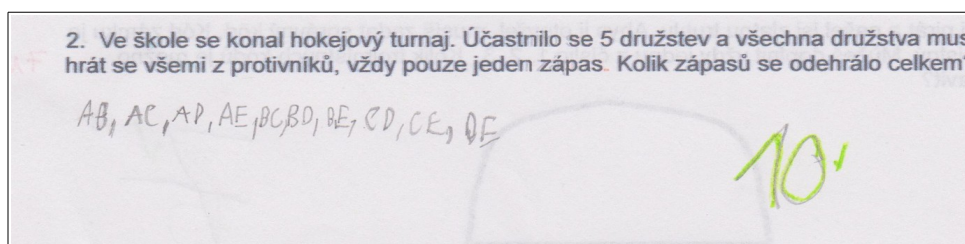 2. Ve škole se konal hokejový turnaj. Účastnilo se 5 družstev a všechna družstva mus
hrát se všemi z protivníků, vždy pouze jeden zápas. Kolik zápasů se odehrálo celkem?
AB, AC, AD, AE, BC, BD, BE, CD, CE, DE
10